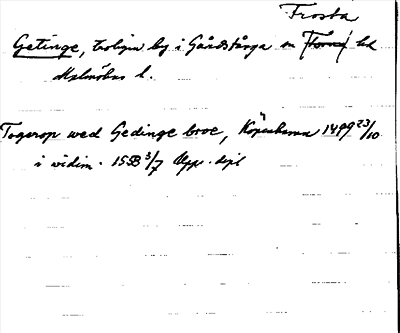 Frosta
Getinge, troligen by i Gårdstånga sn Torna hd
Malmöhus l.
Togerop wed Gedinge broe, Köpenhamn 1499 23/10
i vidim. 1553 3/7 Upps. dipl